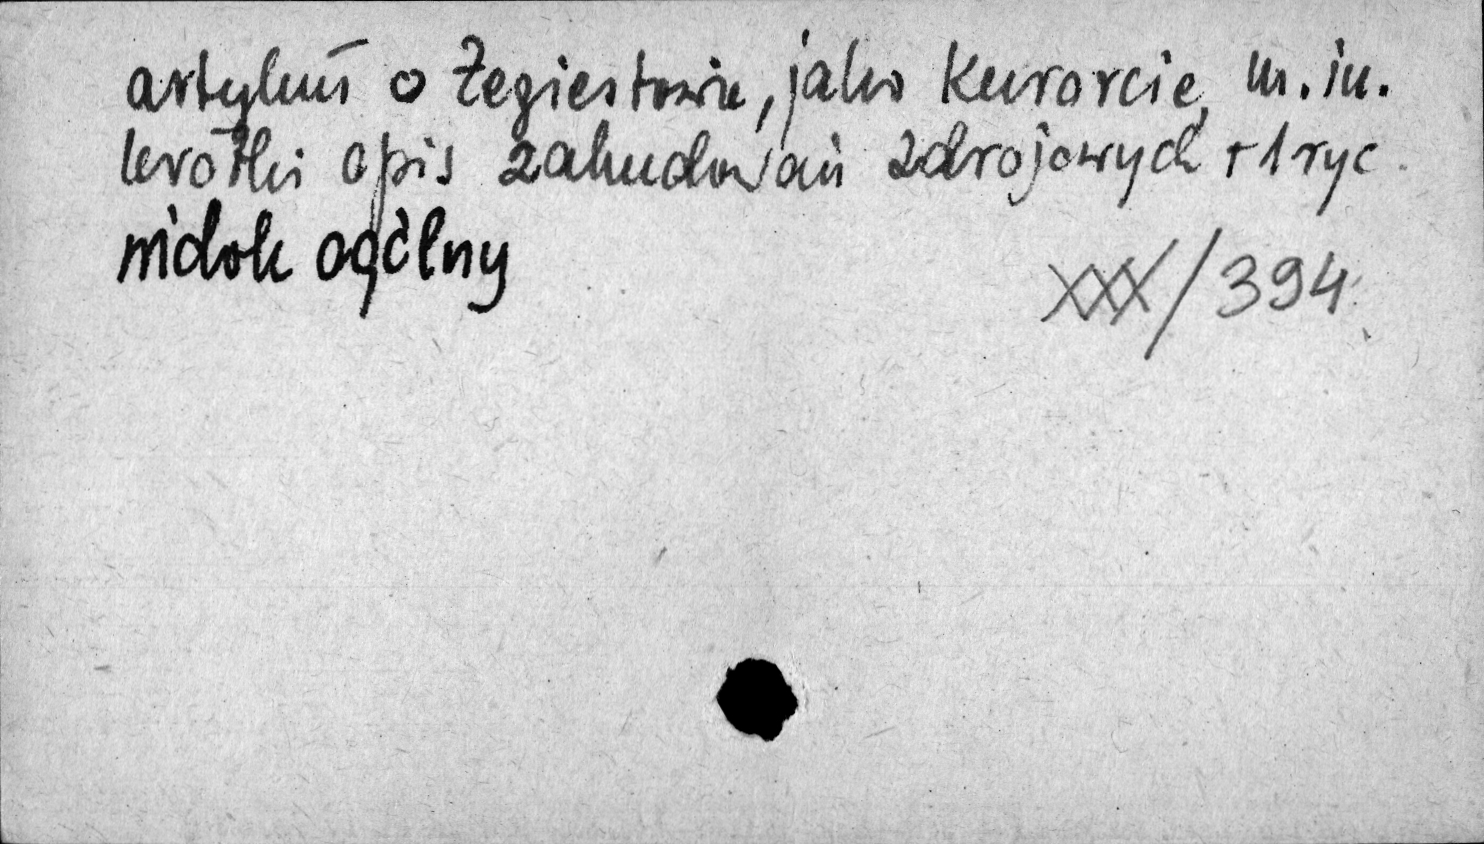 artykuł o Żegiestowie, jako kurorcie, m. in.
krótki opis zabudowań zdrojowych + 1 ryc.
widok ogólny
XXX/394